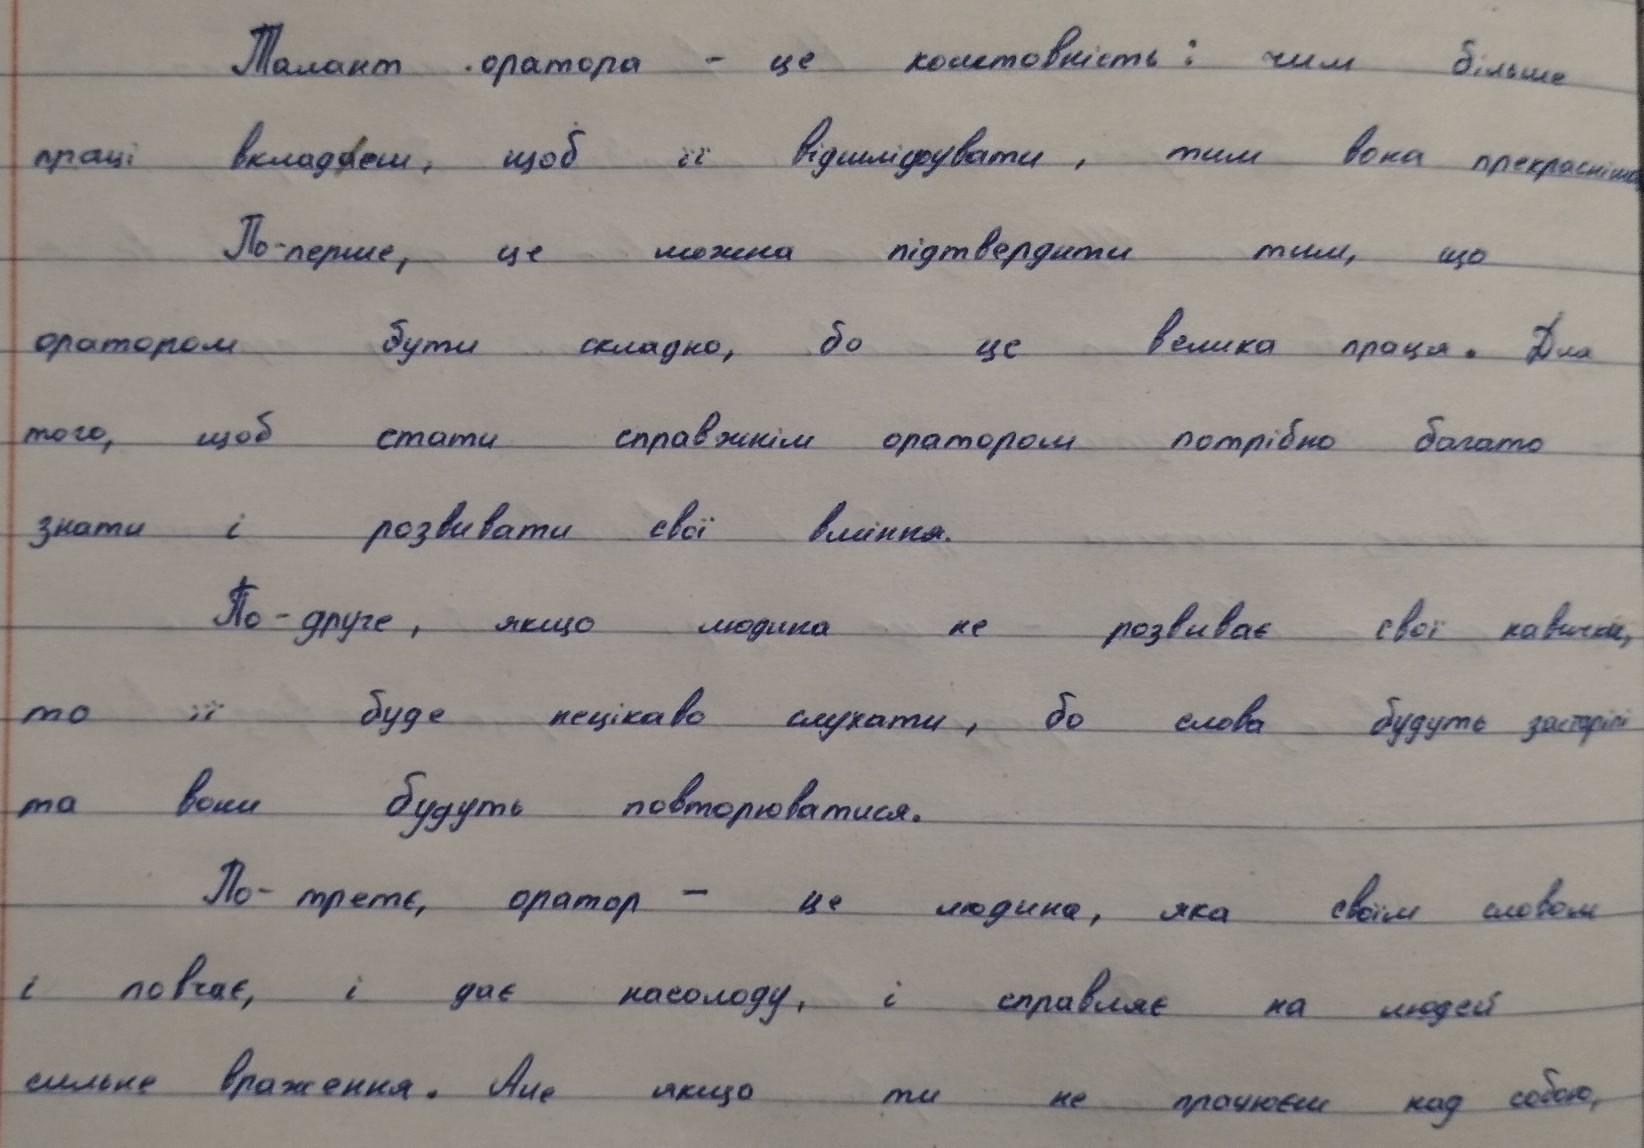 Талант оратора - це коштовність: чим більше
праці вкладаєш, щоб її відшліфувати, тим вона прекрасніша
По-перше, це можна підтвердити тим, що
оратором бути складно, бо це велика праця. Для
того, щоб стати справжнім оратором потрібно багато
знати і розвивати свої вміння.
По-друге, якщо людина не розвиває свої навички,
то її буде нецікаво слухати, бо слова будуть застарілі
та вони будуть повторюватися.
По-третє, оратор - це людина, яка своїм словом
і повчає, і дає насолоду, і справляє на людей
сильне враження. Але якщо ти не працюєш над собою,